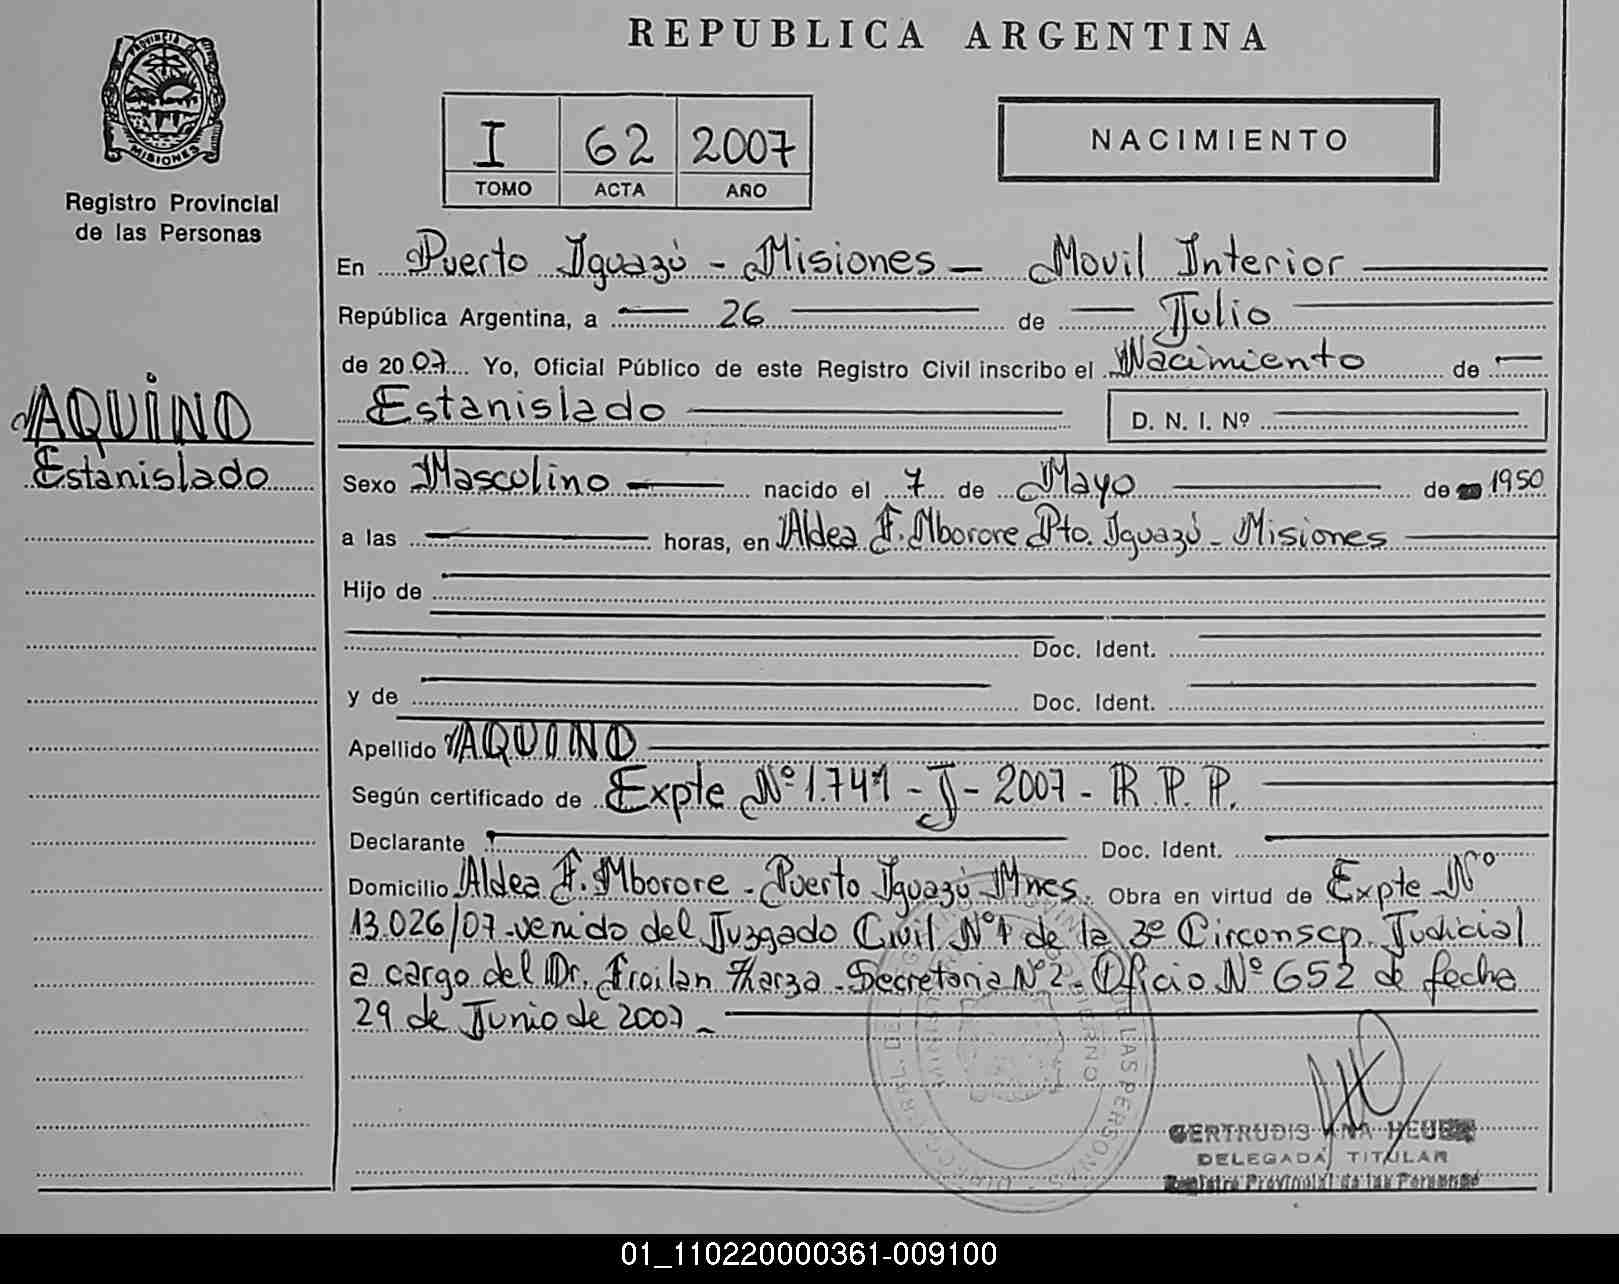 REPUBLICA ARGENTINA
PROVINCIA
MISIONES
Registro Provincial
de las Personas
I 62 2007
TOMO ACTA AÑO
NACIMIENTO
En Puerto Iguazú - Misiones - Movil Interior
República Argentina, a 26 de Julio
de 2007 Yo, Oficial Público de este Registro Civil inscribo el Nacimiento de
AQUINO
Estanislado
Estanislado D. N. I. Nº
Sexo Masculino nacido el 7 de Mayo de 1950
a las horas, en Aldea F. Mborore Pto. Iguazú - Misiones
Hijo de
Doc. Ident.
y de Doc. Ident.
Apellido AQUINO
Según certificado de Expte Nº 1.741 - J - 2007 - R. P. P.
Declarante Doc. Ident.
Domicilio Aldea F. Mborore - Puerto Iguazú Mnes. Obra en virtud de Expte Nº
13.026/07 venido del Juzgado Civil Nº1 de la 3º Circonscp. Judicial
a cargo del Dr. Froilan - Secretaria Nº 2 - Oficio Nº 652 de fecha
29 de Junio de 2007 -
GERTRUDIS ANA
DELEGADA TITULAR
Registro Provincial de las Personas
01_110220000361-009100